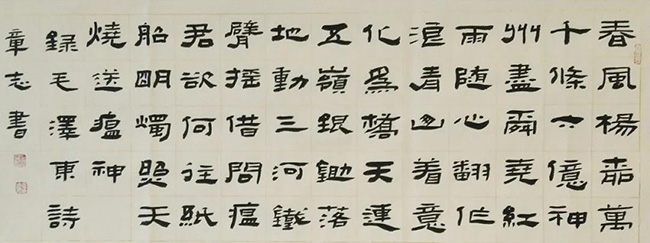 春風楊柳萬
千條六億神
州盡舜堯紅
雨随心翻作
浪青山着意
化爲橋天連
五嶺銀鋤落
地動三河鐵
臂摇借問瘟
君欲何往紙
船明燭照天
燒送瘟神
錄毛澤東詩
章志書